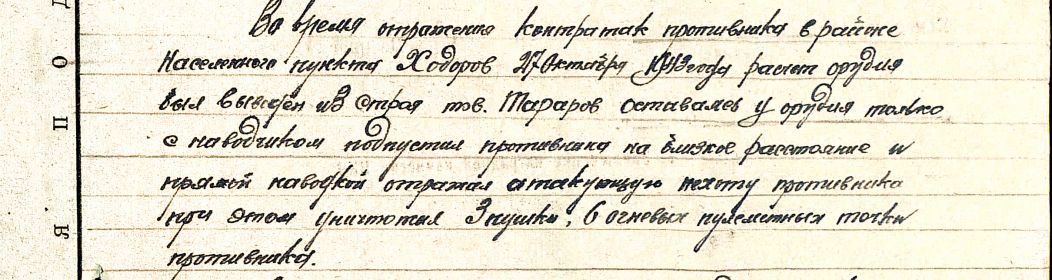 Во время отражение контратак противника в районе
Населенного пункта Ходоров 27 Октября 1943 года расчет орудия
был выведен из строя тов. Тараров оставаясь у орудия только
с наводчиком подпустил противника на близкое расстояние и
прямой наводкой отражал атакующую пехоту противника
при этом уничтожил 3 пушки, 6 огневых пулеметных точки
противника.
Д
О
П
Я